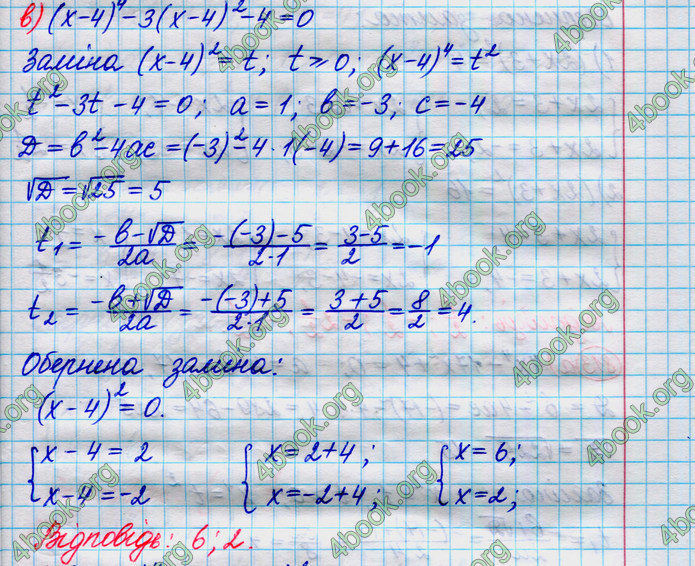 в) (x-4)⁴-3(x-4)²-4=0
Заміна (x-4)²=t; t≥0; (x-4)⁴=t²
t²-3t-4=0; a=1; в=-3; c=-4
Д=в²-4ac=(-3)²-4·1(-4)=9+16=25
√Д=√25=5
t₁=(-в-√Д)/2a=(-(-3)-5)/2·1=(3-5)/2=-1
t₂=(-в+√Д)/2a=(-(-3)+5)/2·1=(3+5)/2=8/2=4.
Обернена заміна:
(x-4)²=0.
{x-4=2 {x=2+4; {x=6;
x-4=-2 x=-2+4; x=2;
Відповідь: 6; 2.
4book.org